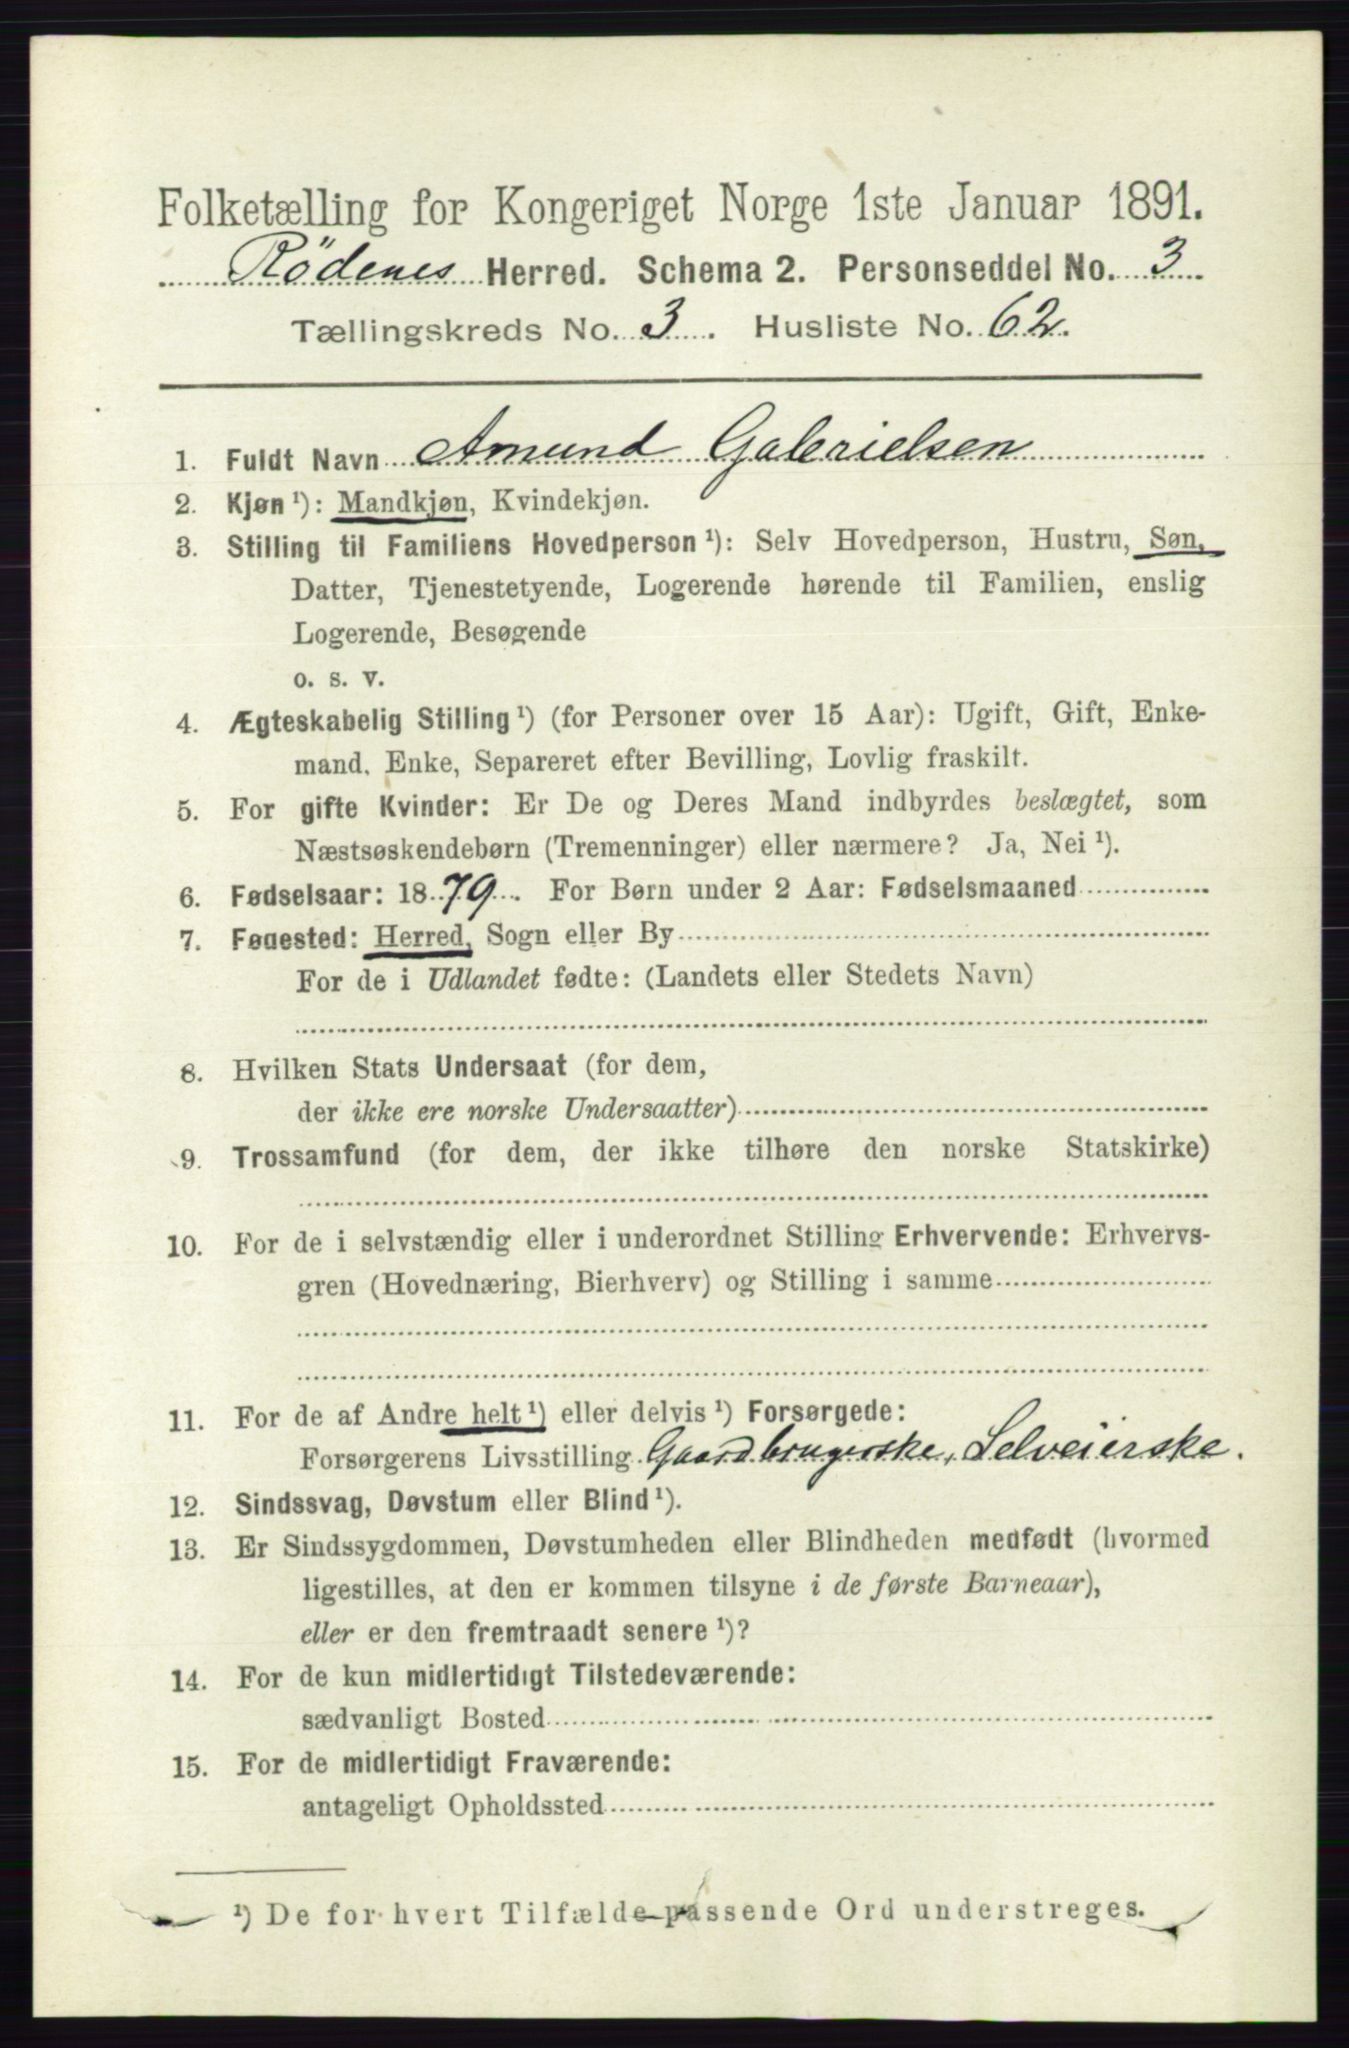 Folketælling for Kongeriget Norge 1ste Januar 1891.
Rödenes Herred. Schema 2. Personseddel No. 3
Tællingskreds No. 3. Husliste No. 62.
1. Fuldt Navn Amund Gabrielsen
2. Kjøn¹): Mandkjøn, Kvindekjøn.
3. Stilling til Familiens Hovedperson¹): Selv Hovedperson, Hustru, Søn,
Datter, Tjenestetyende, Logerende hørende til Familien, enslig
Logerende, Besøgende
o. s. v.
4. Ægteskabelig Stilling¹) (for Personer over 15 Aar): Ugift, Gift, Enke-
mand, Enke, Separeret efter Bevilling, Lovlig fraskilt.
5. For gifte Kvinder: Er De og Deres Mand indbyrdes beslægtet, som
Næstsøskendebørn (Tremenninger) eller nærmere? Ja, Nei¹).
6. Fødselsaar: 1879. For Børn under 2 Aar: Fødselsmaaned
7. Fødested: Herred, Sogn eller By
For de i Udlandet fødte: (Landets eller Stedets Navn)
8. Hvilken Stats Undersaat (for dem,
der ikke ere norske Undersaatter)
9. Trossamfund (for dem, der ikke tilhøre den norske Statskirke)
10. For de i selvstændig eller i underordnet Stilling Erhvervende: Erhvervs-
gren (Hovednæring, Bierhverv) og Stilling i samme
11. For de af Andre helt¹) eller delvis¹) Forsørgede:
Forsørgerens Livsstilling Gaardbrugerske, Selveierske.
12. Sindssvag, Døvstum eller Blind¹).
13. Er Sindssygdommen, Døvstumheden eller Blindheden medfødt (hvormed
ligestilles, at den er kommen tilsyne i de første Barneaar),
eller er den fremtraadt senere¹)?
14. For de kun midlertidigt Tilstedeværende:
sædvanligt Bosted
15. For de midlertidigt Fraværende:
antageligt Opholdssted
¹) De for hvert Tilfælde passende Ord understreges.